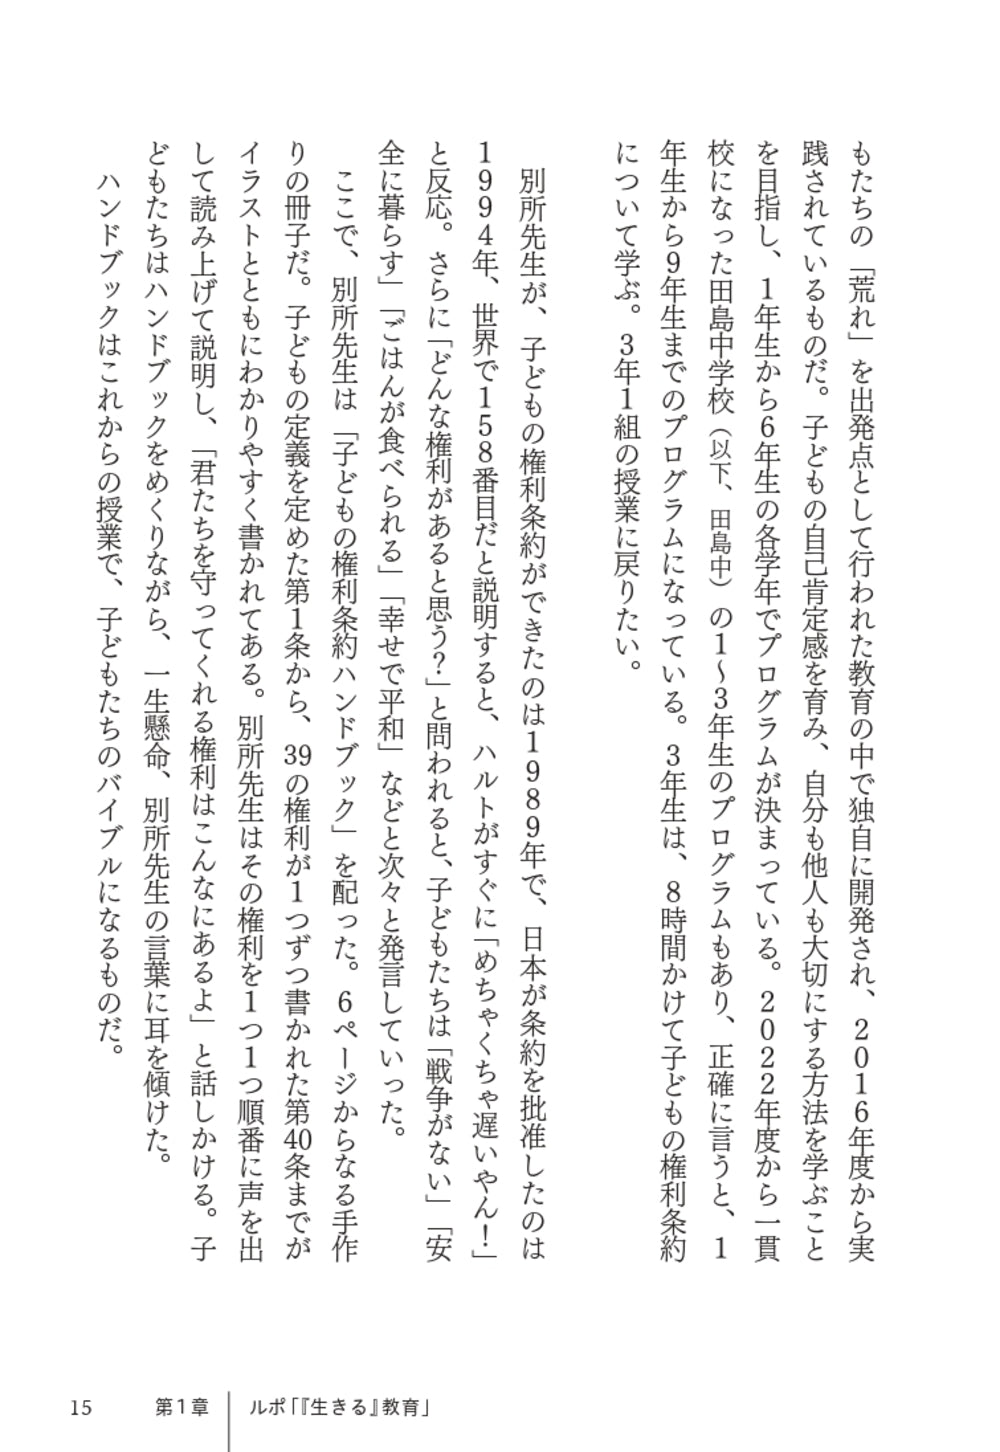 もたちの「荒れ」を出発点として行われた教育の中で独自に開発され、2016年度から実
践されているものだ。子どもの自己肯定感を育み、自分も他人も大切にする方法を学ぶこと
を目指し、1年生から6年生の各学年でプログラムが決まっている。2022年度から一貫
校になった田島中学校（以下、田島中）の1～3年生のプログラムもあり、正確に言うと、1
年生から9年生までのプログラムになっている。3年生は、8時間かけて子どもの権利条約
について学ぶ。3年1組の授業に戻りたい。
別所先生が、子どもの権利条約ができたのは1989年で、日本が条約を批准したのは
1994年、世界で158番目だと説明すると、ハルトがすぐに「めちゃくちゃ遅いやん！」
と反応。さらに「どんな権利があると思う？」と問われると、子どもたちは「戦争がない」「安
全に暮らす」「ごはんが食べられる」「幸せで平和」などと次々と発言していった。
ここで、別所先生は「子どもの権利条約ハンドブック」を配った。6ページからなる手作
りの冊子だ。子どもの定義を定めた第1条から、39の権利が1つずつ書かれた第40条までが
イラストとともにわかりやすく書かれてある。別所先生はその権利を1つ1つ順番に声を出
して読み上げて説明し、「君たちを守ってくれる権利はこんなにあるよ」と話しかける。子
どもたちはハンドブックをめくりながら、一生懸命、別所先生の言葉に耳を傾けた。
ハンドブックはこれからの授業で、子どもたちのバイブルになるものだ。
15 第1章 ルポ「『生きる』教育」